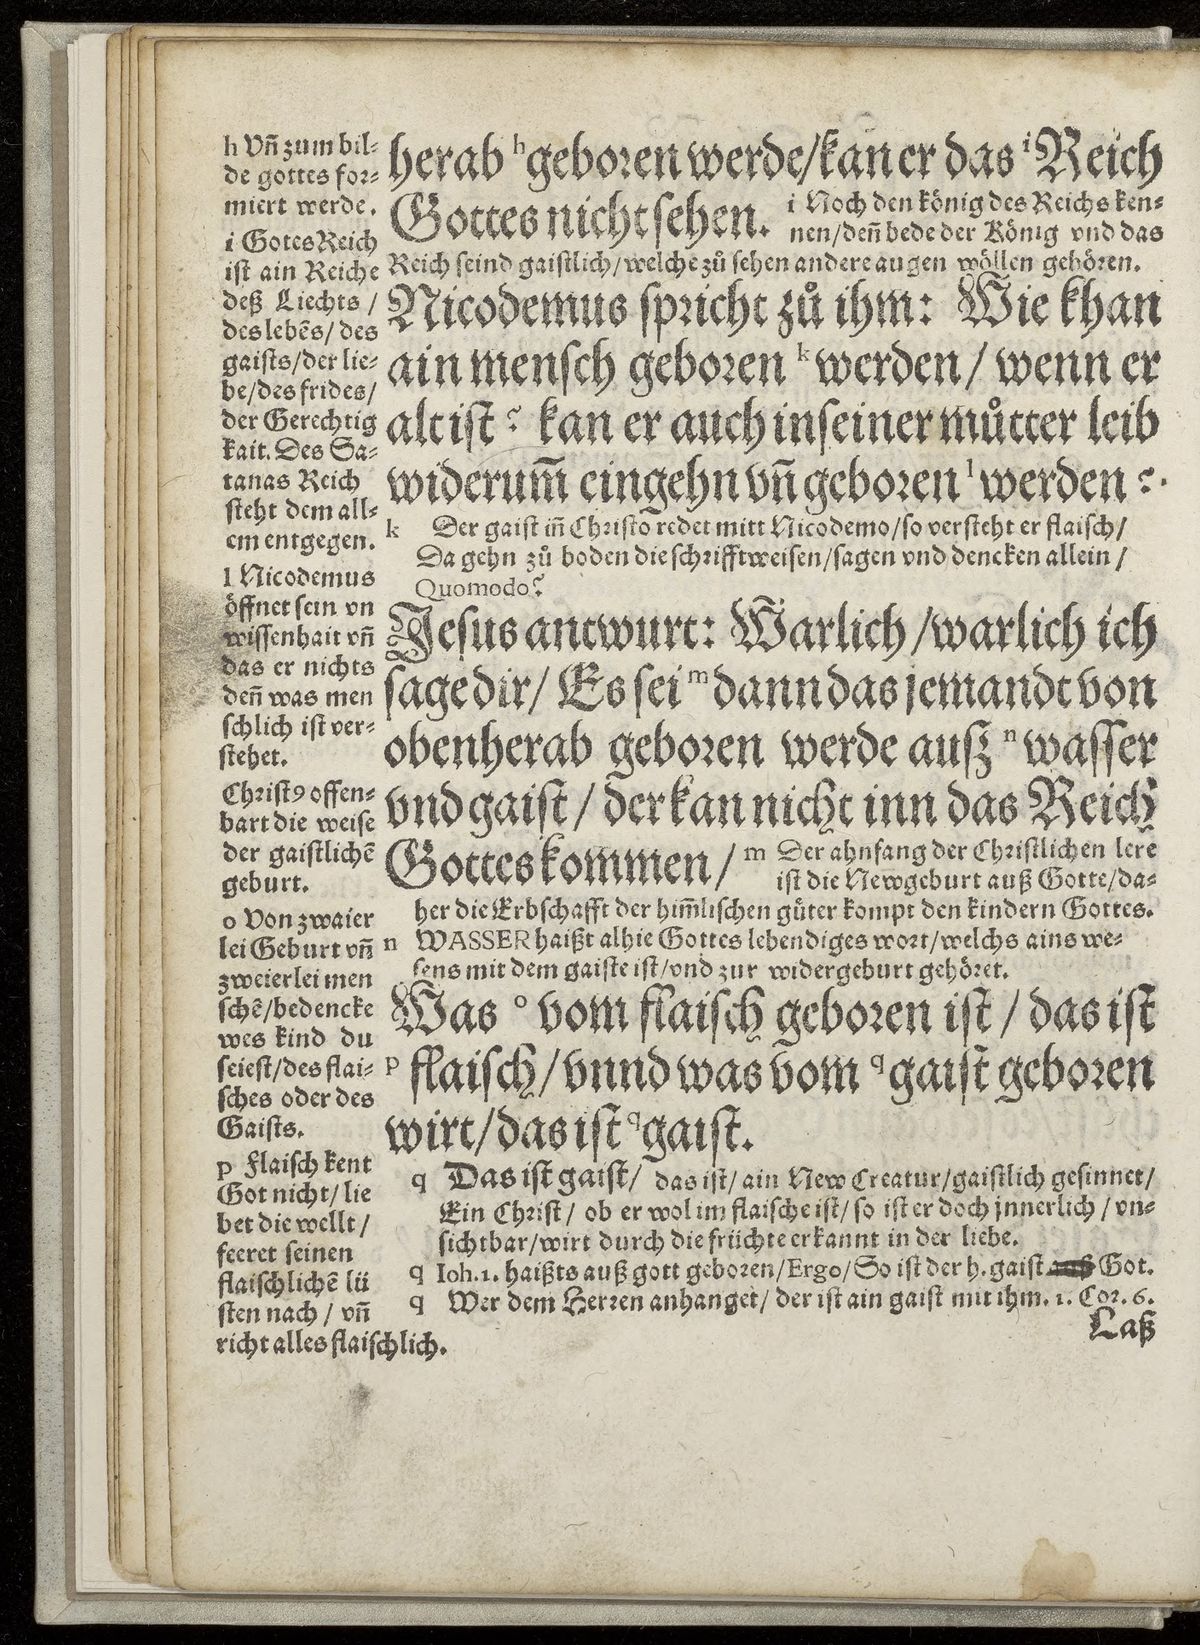 h Vñ zum bil-
de gottes for-
miert werde.
i Gotes Reich
ist ain Reiche
deß Liechts /
des lebẽs/ des
gaists/der lie-
be/des frides/
der Gerechtig
kait. Des Sa-
tanas Reich
steht dem all-
em entgegen.
l Nicodemus
öffnet sein vn
wissenhait vñ
das er nichts
deñ was men
schlich ist ver-
stehet.
Christ9 offen-
bart die weise
der gaistlichẽ
geburt.
o Von zwaier
lei Geburt vñ
zweierlei men
schẽ/bedencke
wes kind du
seiest/des flai-
sches oder des
Gaists.
p Flaisch kent
Got nicht/ lie
bet die wellt /
feeret seinen
flaischlichẽ lü
sten nach / vñ
richt alles flaischlich.
herab h geboren werde/kan er das i Reich
Gottes nicht sehen. i Noch den könig des Reichs ken-
nen/deñ bede der König vnd das
Reich seind gaistlich/welche zů sehen andere augen wöllen gehören.
Nicodemus spricht zů ihm: Wie khan
ain mensch geboren k werden / wenn er
alt ist ? kan er auch in seiner můtter leib
widerum̃ eingehn vñ geboren l werden ?.
k Der gaist iñ Christo redet mitt Nicodemo/so versteht er flaisch/
Da gehn zů boden die schrifftweisen/sagen vnd dencken allein /
Quomodo?
Jesus antwurt: Warlich /warlich ich
sage dir/ Es sei m dann das jemandt von
obenherab geboren werde ausz n wasser
vnd gaist / der kan nicht inn das Reich
Gottes kommen / m Der ahnfang der Christlichen lere
ist die Newgeburt auß Gotte/da-
her die Erbschafft der him̃lischen güter kompt den kindern Gottes.
n WASSER haißt alhie Gottes lebendiges wort/welchs ains we-
sens mit dem gaiste ist/vnd zur widergeburt gehöret.
Was o vom flaisch geboren ist / das ist
p flaisch/ vnnd was vom q gaist geboren
wirt/das ist q gaist.
q Das ist gaist/ das ist/ ain New Creatur/gaistlich gesinnet/
Ein Christ/ ob er wol im flaische ist/ so ist er doch jnnerlich / vn-
sichtbar/wirt durch die früchte erkannt in der liebe.
q Ioh.1. haißts auß gott geboren/Ergo/So ist der h. gaist Got.
q Wer dem Herren anhanget/ der ist ain gaist mit ihm. 1. Cor. 6.
Laß